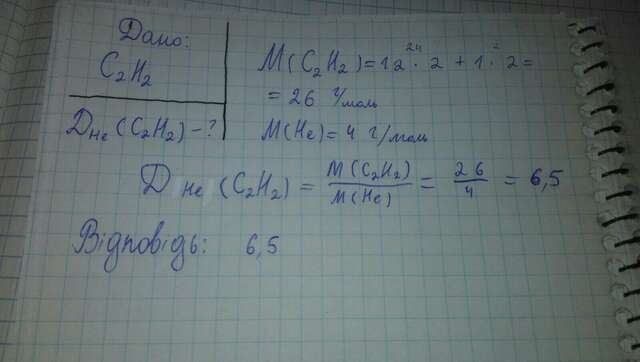 Дано:
C₂H₂
D He (C₂H₂) – ?
M(C₂H₂) = 12²⁴ · 2 + 1 ·² 2 =
= 26 г/моль
M(He) = 4 г/моль
D He (C₂H₂) = M(C₂H₂)/M(He) = 26/4 = 6,5
Відповідь: 6,5